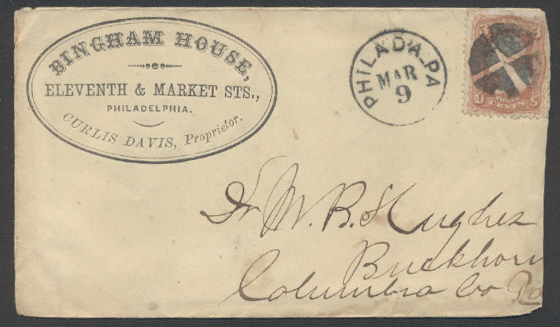 BINGHAM HOUSE,
ELEVENTH & MARKET STS.,
PHILADELPHIA.
CURLIS DAVIS, Proprietor.
PHILAD'A. PA
MAR
9
U S
CENTS
Dr W. B. Hughes
Buckhorn
Columbia Co Pa